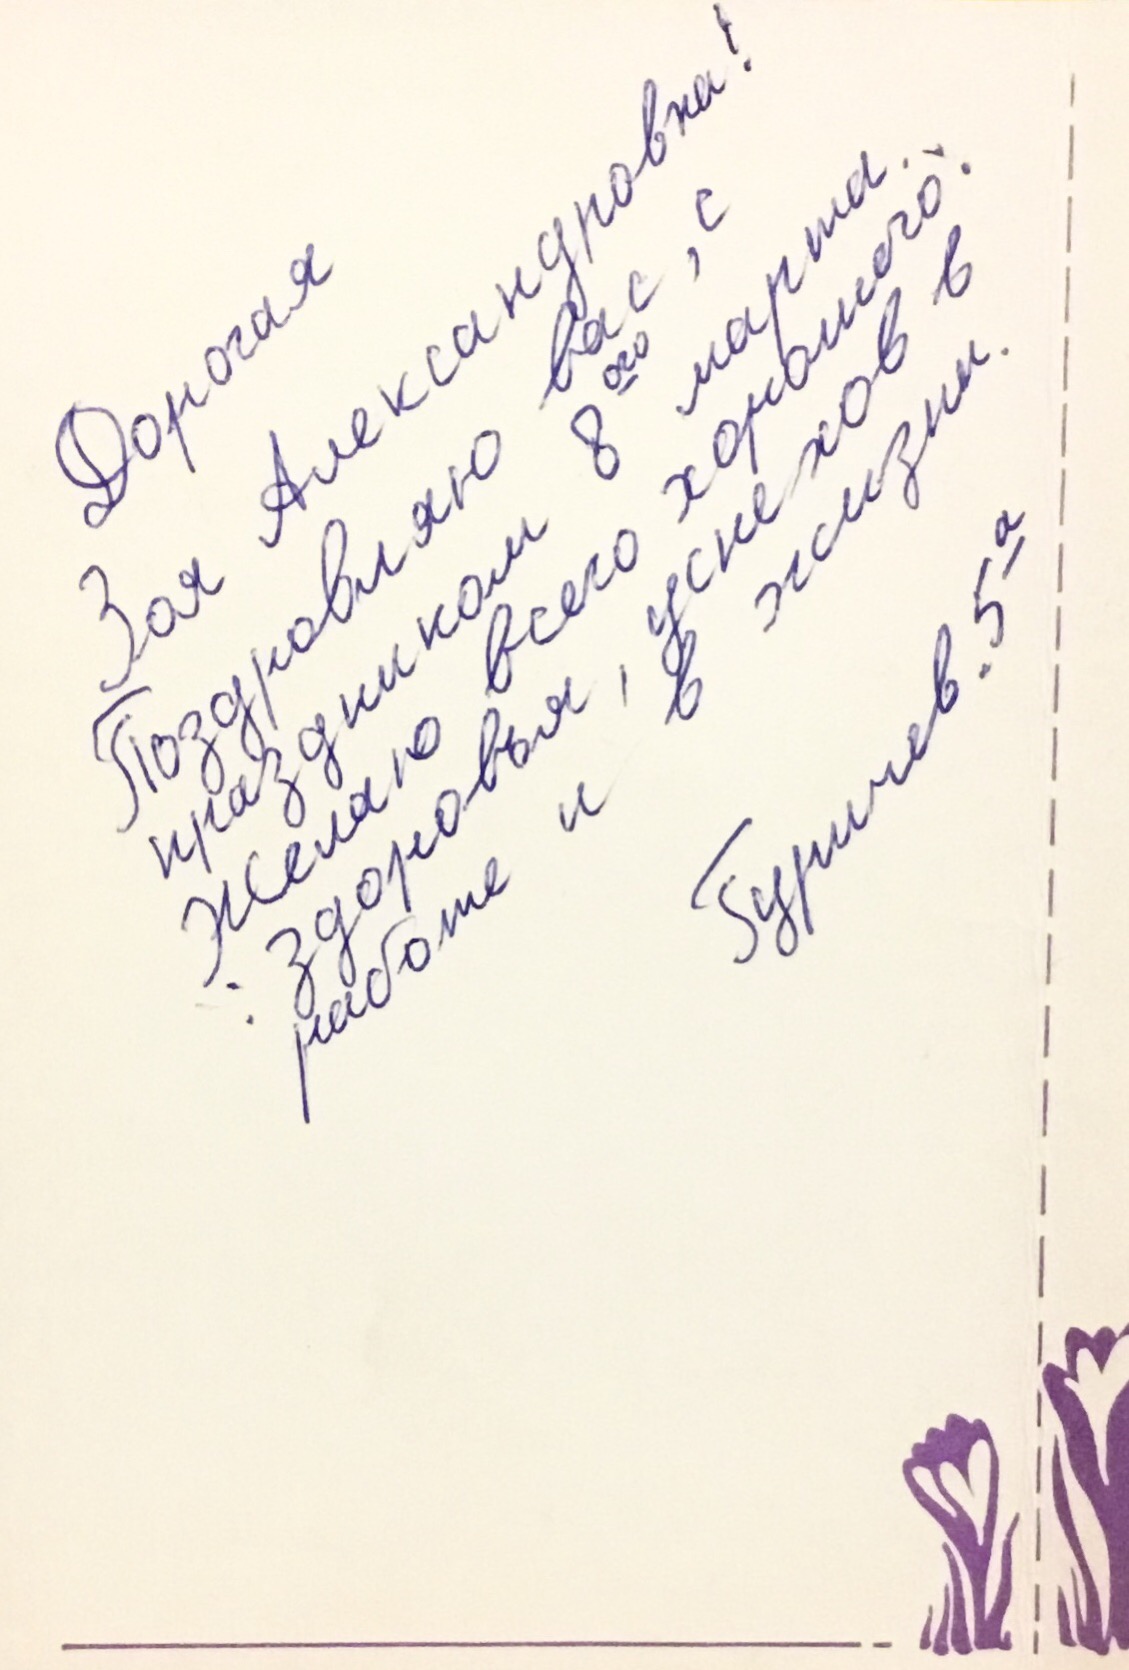 Дорогая
Зоя Александровна!
Поздравляю вас, с
праздником 8ого марта.
Желаю всего хорошего:
: здоровья, успехов в
работе и в жизни.
Гуричев. 5а